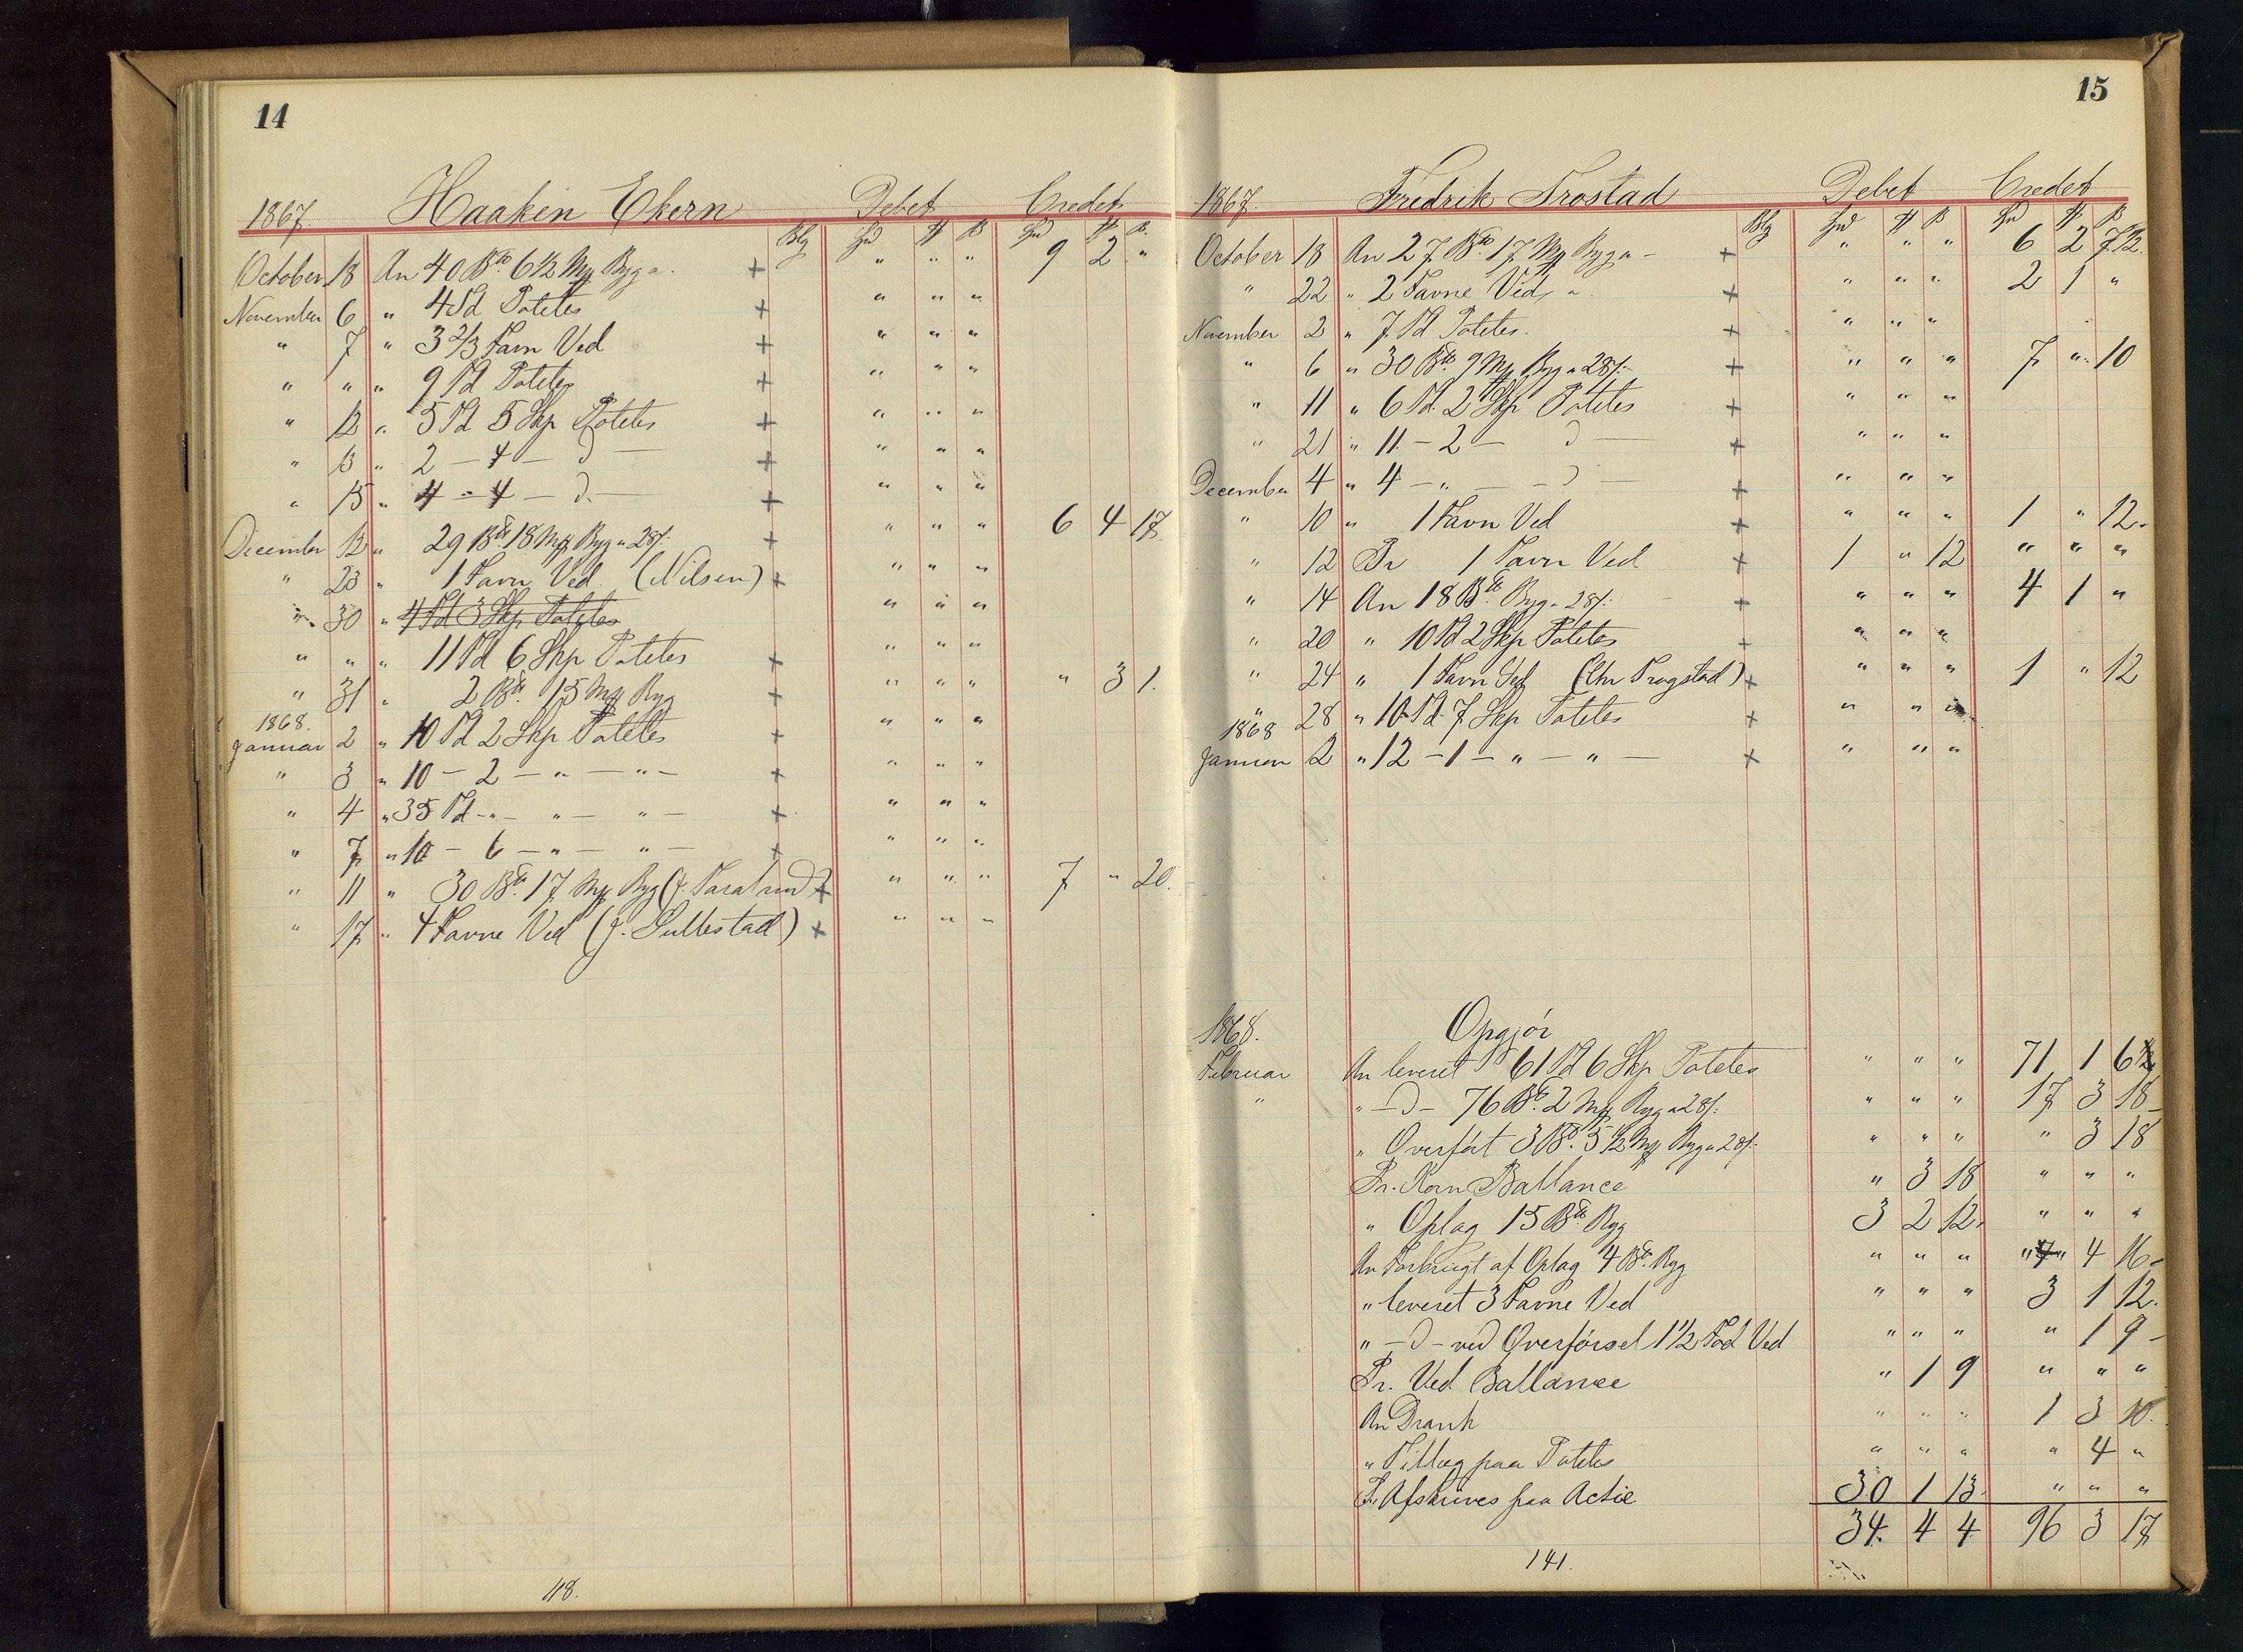 14
1867. Haakin Ekern Debet Credet
Blg Spd # ß Spd # ß
October 18 An 40 Btd 6 1/2 Mk Byg a. + " " " 9 2 "
November 6 " 4 Td Potetes + " " "
" 7 " 3 2/3 Favn Ved + " " "
" " " 9 Td Potetes + " " "
" 12 " 5 Td 5 Skp Potetes + " " "
" 13 " 2 – 4 – D – + " " "
" 15 " 4 – 4 – D – + " " "
December 12 " 29 Btd 18 Mk Byg a 28/- + " " " 6 4 17
" 23 " 1 Favn Ved (Nilsen) + " " "
" 30 " 4 Td 3 Skp Potetes " " "
" " " 11 Td 6 Skp Potetes + " " "
" 31 " 2 Btd 15 Mk Byg + " " " " 3 1.
1868.
Januar 2 " 10 Td 2 Skp Potetes + " " "
" 3 " 10 – 2 – " – " – + " " "
" 4 " 35 Td – " – " – " – + " " "
" 7 " 10 – 6 – " – " – + " " "
" 11 " 30 Btd 17 Mk Byg (J. Taralrud) + " " " 7 " 20.
" 17 " 4 Favne Ved (J. Sullestad) + " " "
118.
15
1867. Fredrik Trostad Debet Credet
Blg Spd # ß Spd # ß
October 18 An 27 Btd 17 Mk Byg a – + " " " 6 2 7 1/2
" 22 " 2 Favne Ved a + " " " 2 1 "
November 2 " 7 Td Potetes. + " " "
" 6 " 30 Btd 9 Mk Byg a 28/- + " " " 7 " 10
" 11 " 6 Td 2 Skp Potetes + " " "
" 21 " 11 – 2 – D – + " " "
December 4 " 4 – " – – D – + " " "
" 10 " 1 Favn Ved + " " " 1 " 12.
" 12 Pr 1 Favn Ved + 1 " 12 " " "
" 14 An 18 Btd Byg a 28/- + " " " 4 1 "
" 20 " 10 Td 2 Skp Potetes + " " "
" 24 " 1 Favn Ved (Chr Trogstad) + " " " 1 " 12
" 28 " 10 Td 7 Skp Potetes + " " "
1868
Januar 2 " 12 – 1 – " – " – + " " "
1868. Opgjör
Februar An leveret 61 Td 6 Skp Potetes " " " 71 1 6
" " – D – 76 Btd 2 Mk Byg a 28/- " " " 17 3 18
" Overfört 3 Btd 5 1/2 Mk Byg a 28/- " " " " 3 18
Pr. Korn Ballance " 3 18 " " "
" Oplag 15 Btd Byg 3 2 12 " " "
An Forbrugt af Oplag 4 Btd Byg " " " " 4 16
" leveret 3 Favne Ved " " " 3 1 12.
" – D – ved Overförsel 1 1/2 Fod Ved " " " " 1 9
Pr. Ved Ballance " 1 9 " " "
An Drank " " " 1 3 10.
" Tillæg paa Potetes " " " " 4 "
Pr Afskrives paa Actie 30 1 13 " " "
34. 4 4 96 3 17
141.